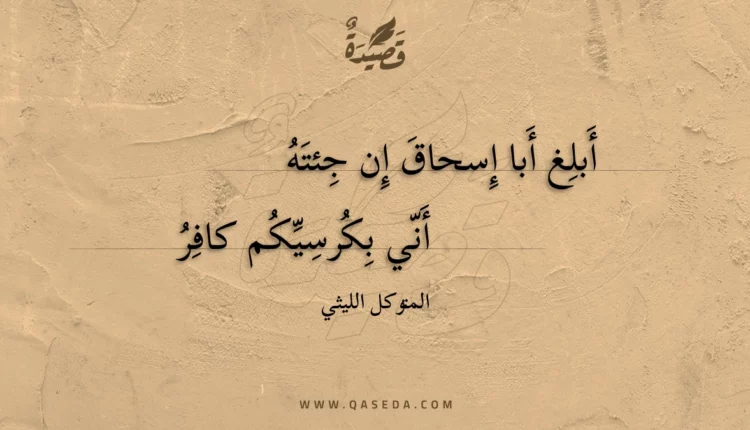 قَصِيدَةٌ
أَبلِغ أَبا إِسحاقَ إِن جِئتَهُ
أَنّي بِكُرسِيِّكُم كافِرُ
المتوكل الليثي
WWW.QASEDA.COM